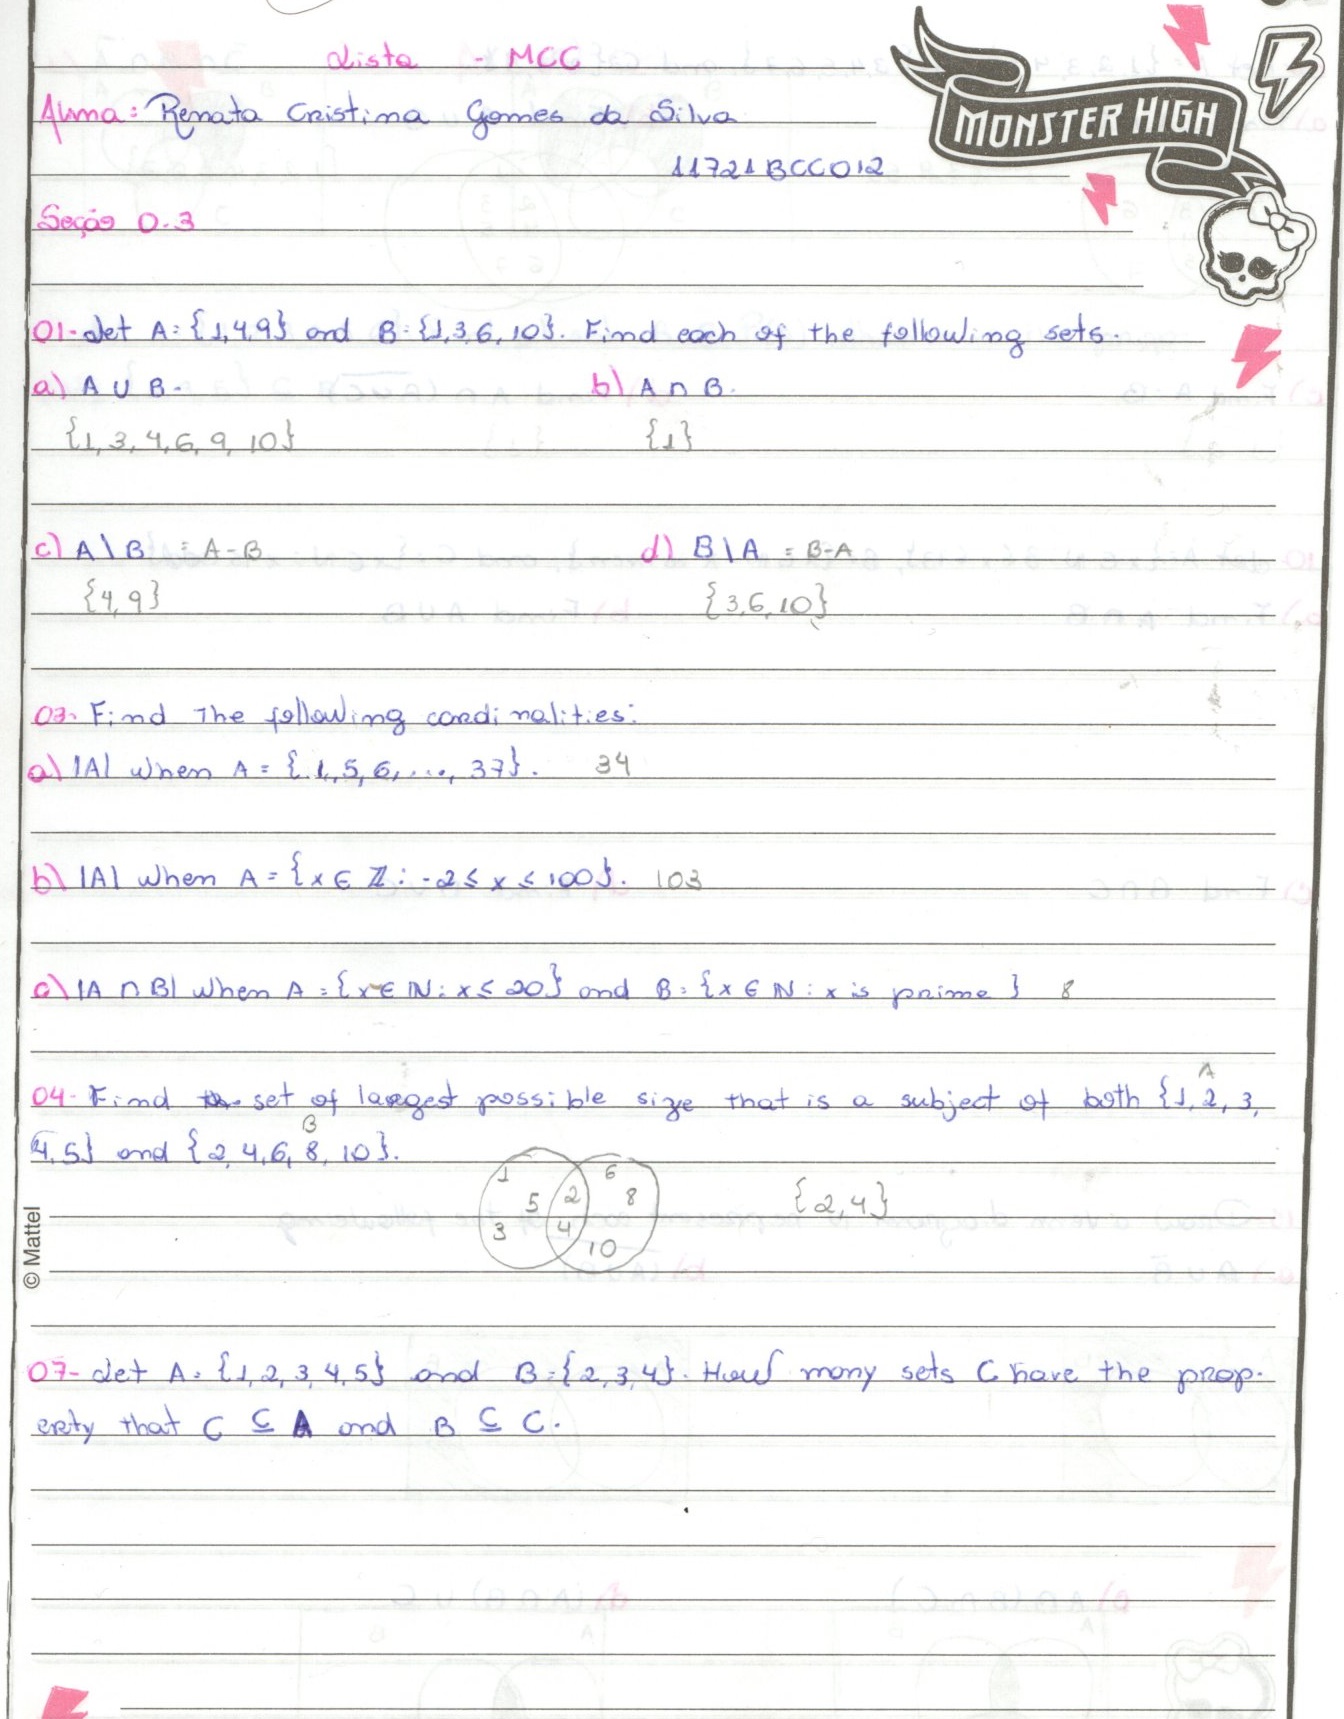 Lista - MCC
MONSTER HIGH
Aluna: Renata Cristina Gomes da Silva
11721BCC012
Seção 0.3
01- Let A = {1,4,9} and B = {1,3,6,10}. Find each of the following sets.
a) A ∪ B. b) A ∩ B.
{1, 3, 4, 6, 9, 10} {1}
c) A \ B = A-B d) B \ A = B-A
{4,9} {3,6,10}
03. Find The following cardinalities:
a) |A| when A = {1,5,6,...,37}. 34
b) |A| when A = {x ∈ ℤ : -2 ≤ x ≤ 100}. 103
c) |A ∩ B| when A = {x ∈ ℕ : x ≤ 20} and B = {x ∈ ℕ : x is prime } 8
A
04- Find the set of largest possible size that is a subject of both {1,2,3,
B
4,5} and {2,4,6,8,10}.
1 5 3 2 4 6 8 10 {2,4}
© Mattel
07- Let A = {1,2,3,4,5} and B = {2,3,4}. How many sets C have the prop-
erty that C ⊆ A and B ⊆ C.